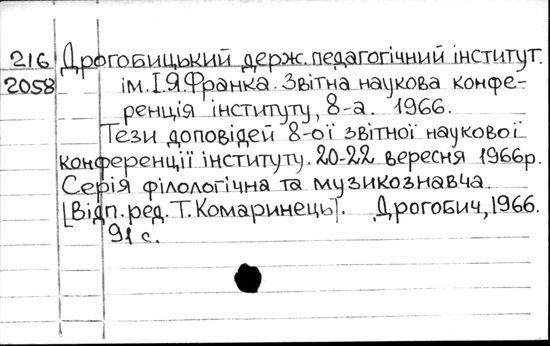 216 Дрогобицький держ. педагогічний інститут.
2058 ім. І.Я.Франка. Звітна наукова конфе-
ренція інституту, 8-а. 1966.
Тези доповідей 8-ої звітної наукової
конференції інституту. 20-22 вересня 1966р.
Серія філологічна та музикознавча.
[Відп. ред. Т. Комаринець]. Дрогобич, 1966.
91 с.